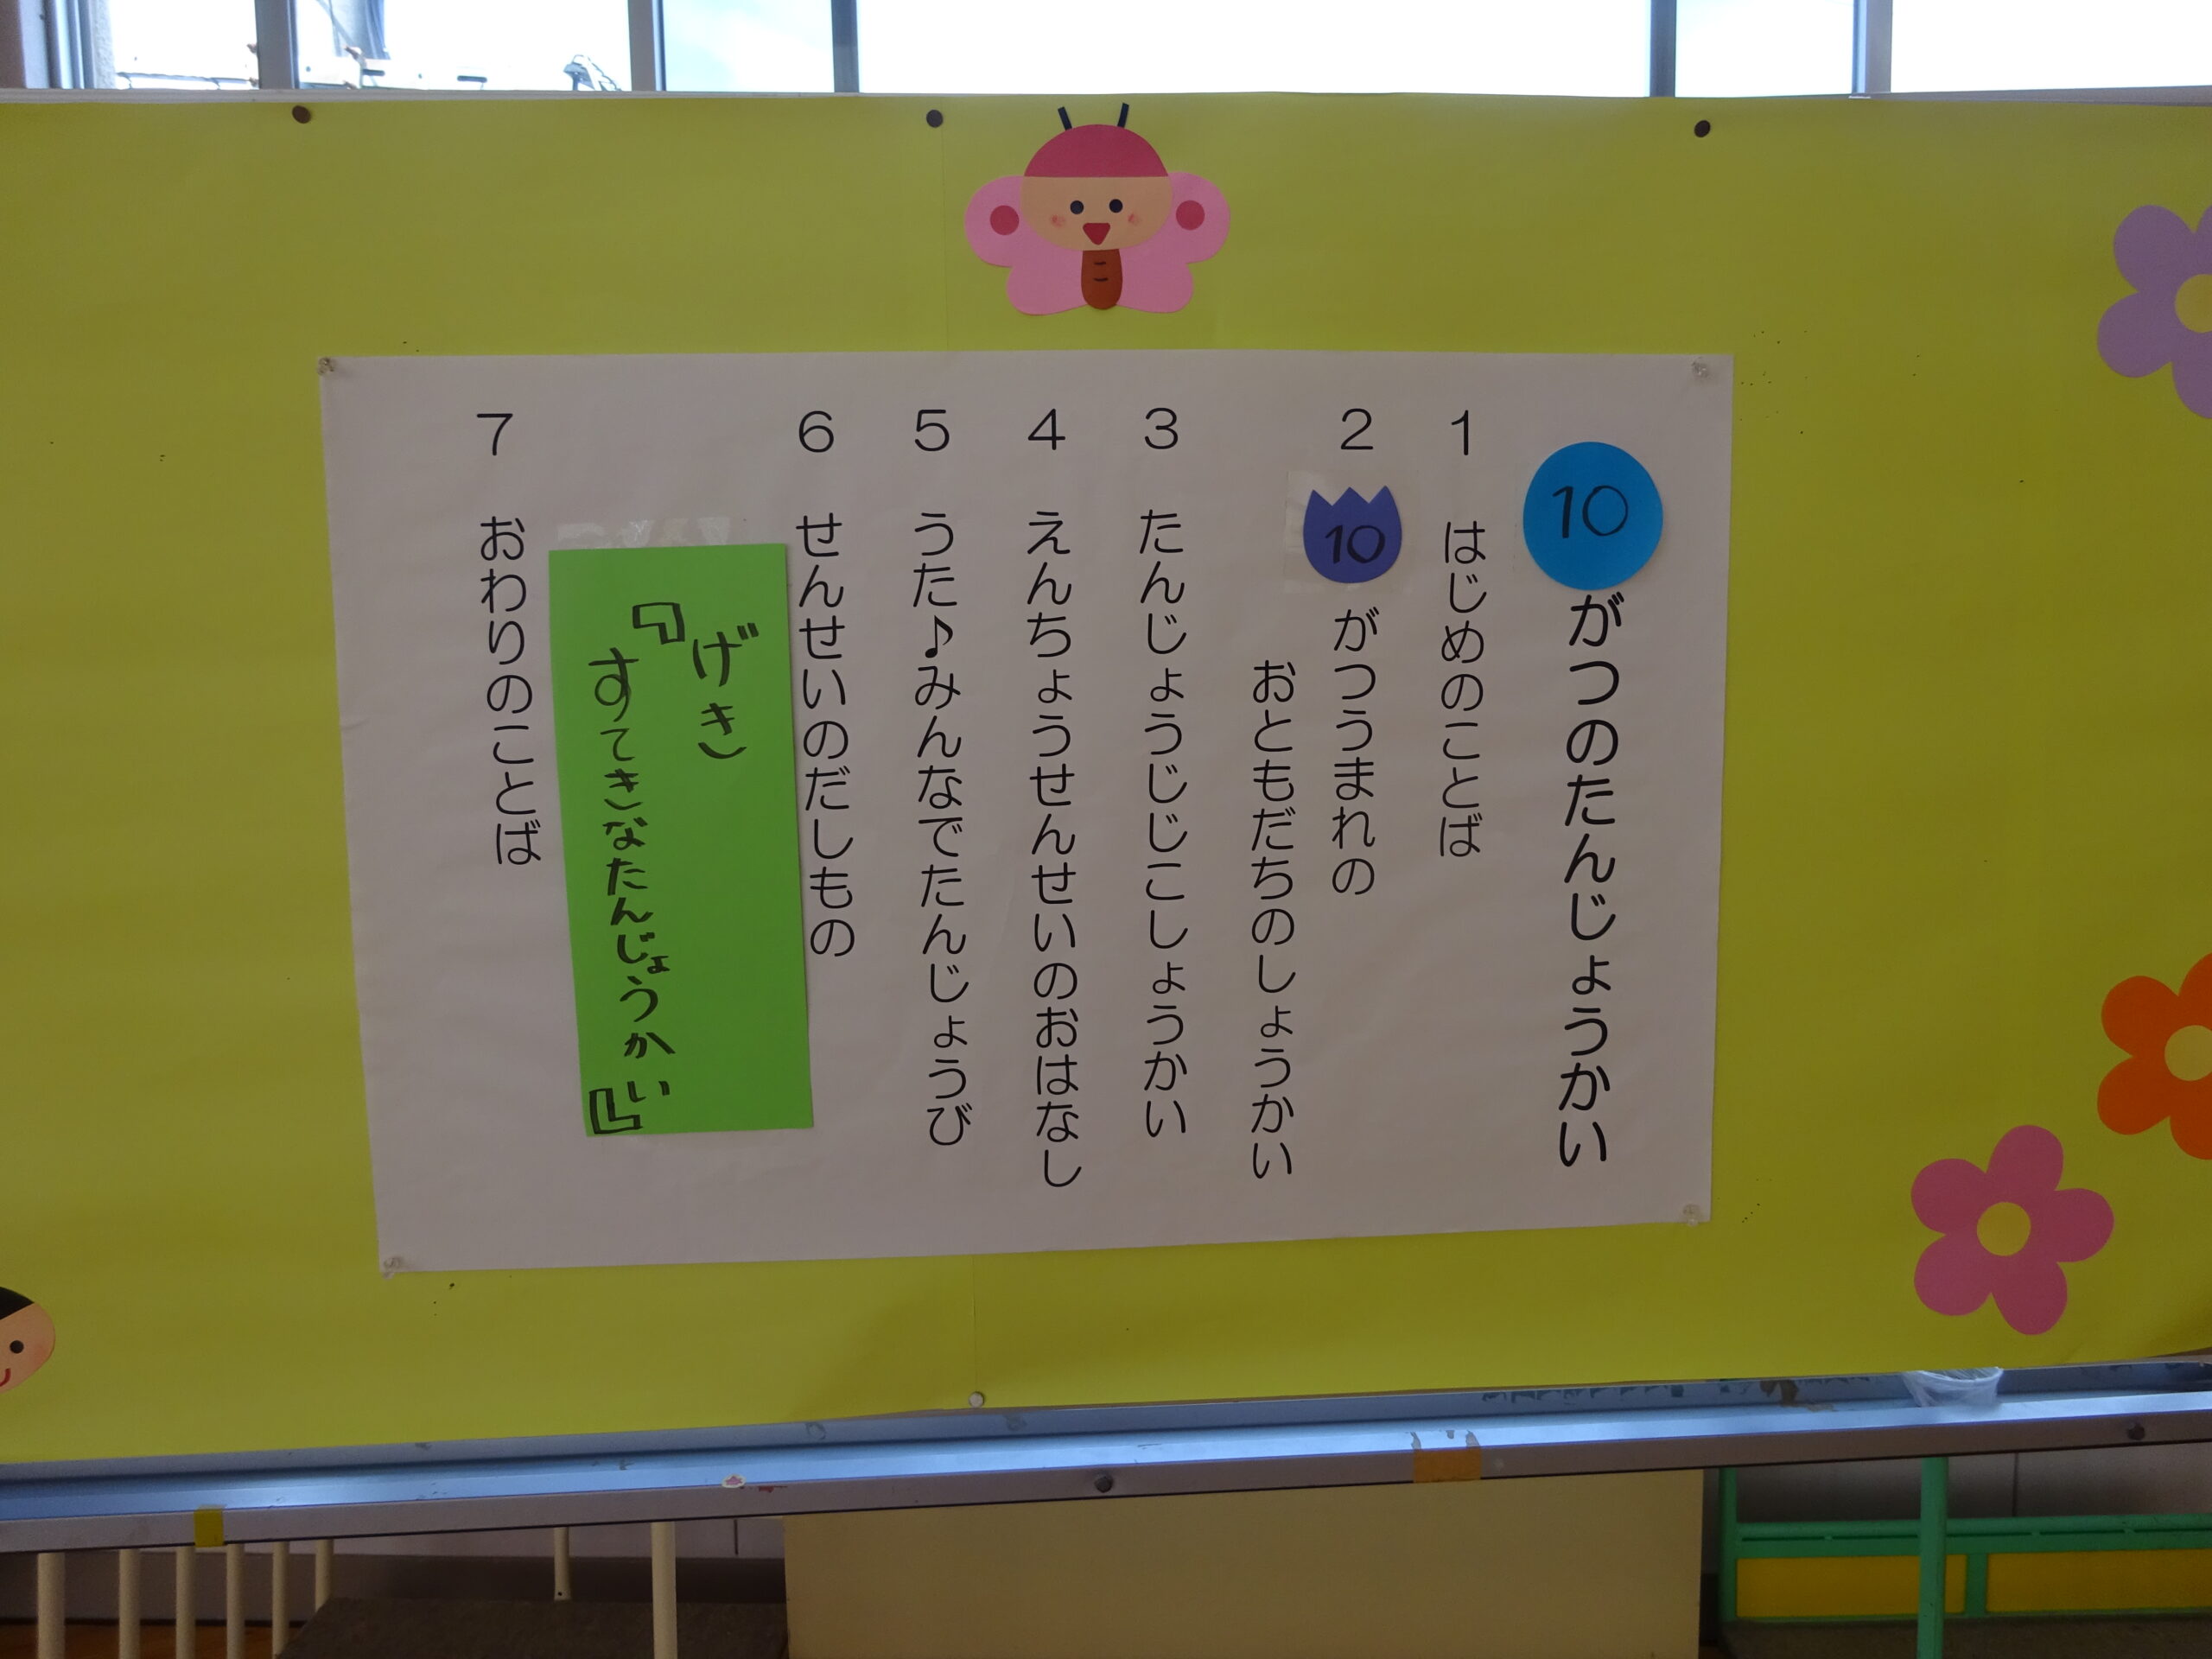 10がつのたんじょうかい
1 はじめのことば
2 10がつうまれの
おともだちのしょうかい
3 たんじょうじじこしょうかい
4 えんちょうせんせいのおはなし
5 うた♪みんなでたんじょうび
6 せんせいのだしもの
げき
『すてきなたんじょうかい』
7 おわりのことば